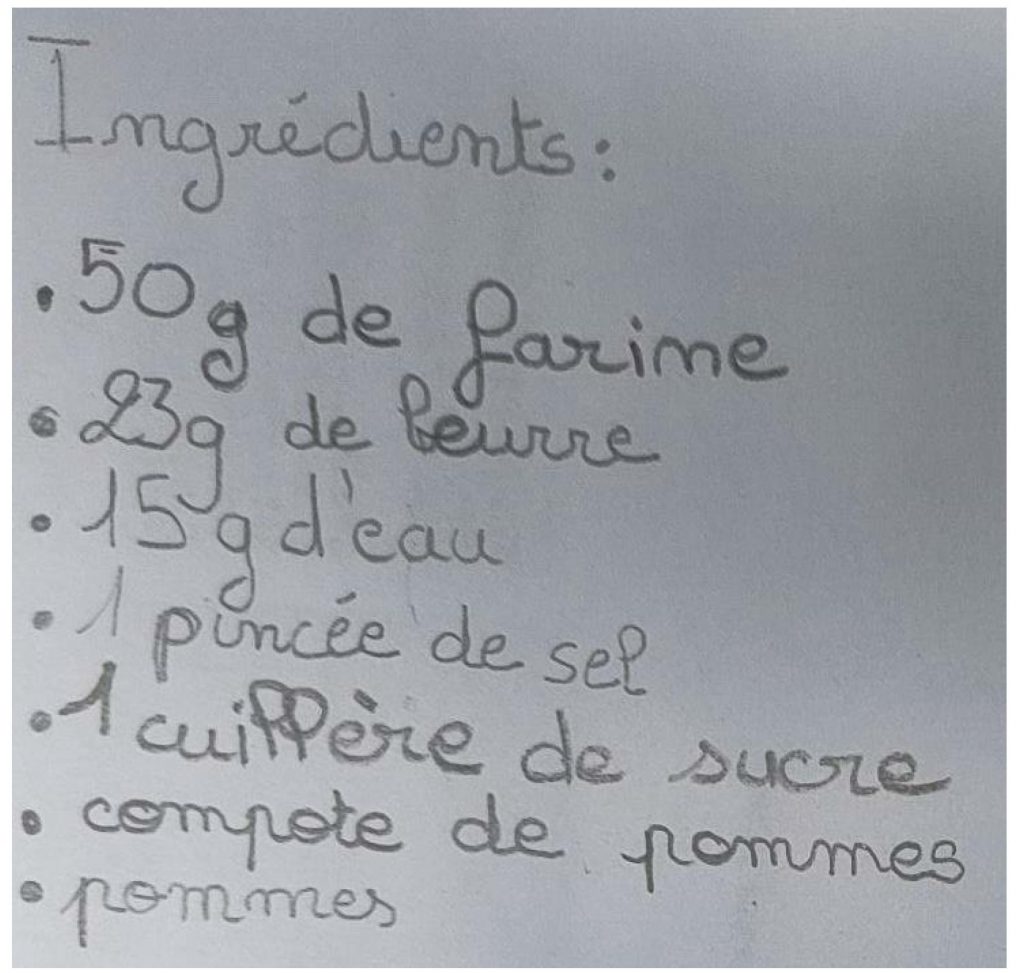 Ingrédients:
. 50g de farine
. 23g de beurre
. 15g d'eau
. 1 pincée de sel
. 1 cuillère de sucre
. compote de pommes
. pommes